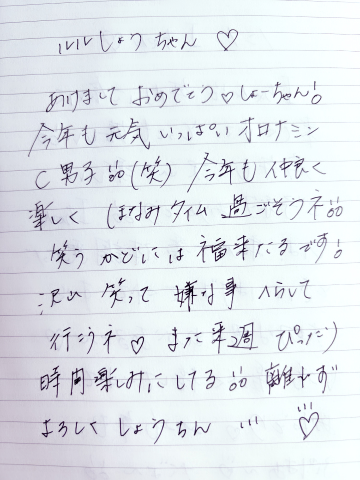 ルルしょうちゃん♡
あけまして おめでとう♡しょーちゃん!
今年も 元気 いっぱい オロナミン
C 男子!!(笑) 今年も 仲良く
楽しく ほなみタイム 過ごそうネ!!
笑う かどには 福来たる です!
沢山 笑って 嫌な事 へらして
行こうネ♡ また来週 ぴったり
時間 楽しみに してる!! 離れず
よろしく しょうちん ♡